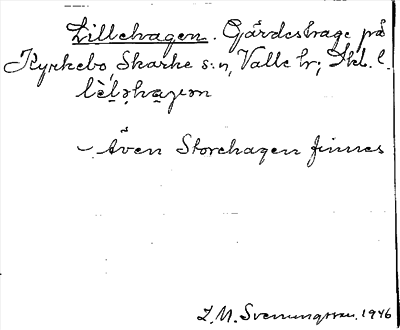 Lillehagen. Gärdeshage på
Kyrkebo, Skarke s:n, Valle hr; Skl. l.
lèl̥əhagən
Även Storehagen finnes
L. M. Svenungsson. 1946